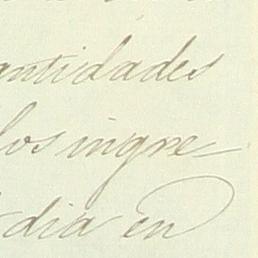 antidades
los ingre-
dia en